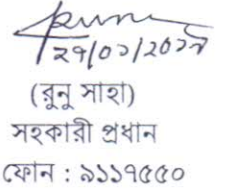 ২৭/০১/২০১৯
(রুনু সাহা)
সহকারী প্রধান
ফোন : ৯১১৭৫৫০